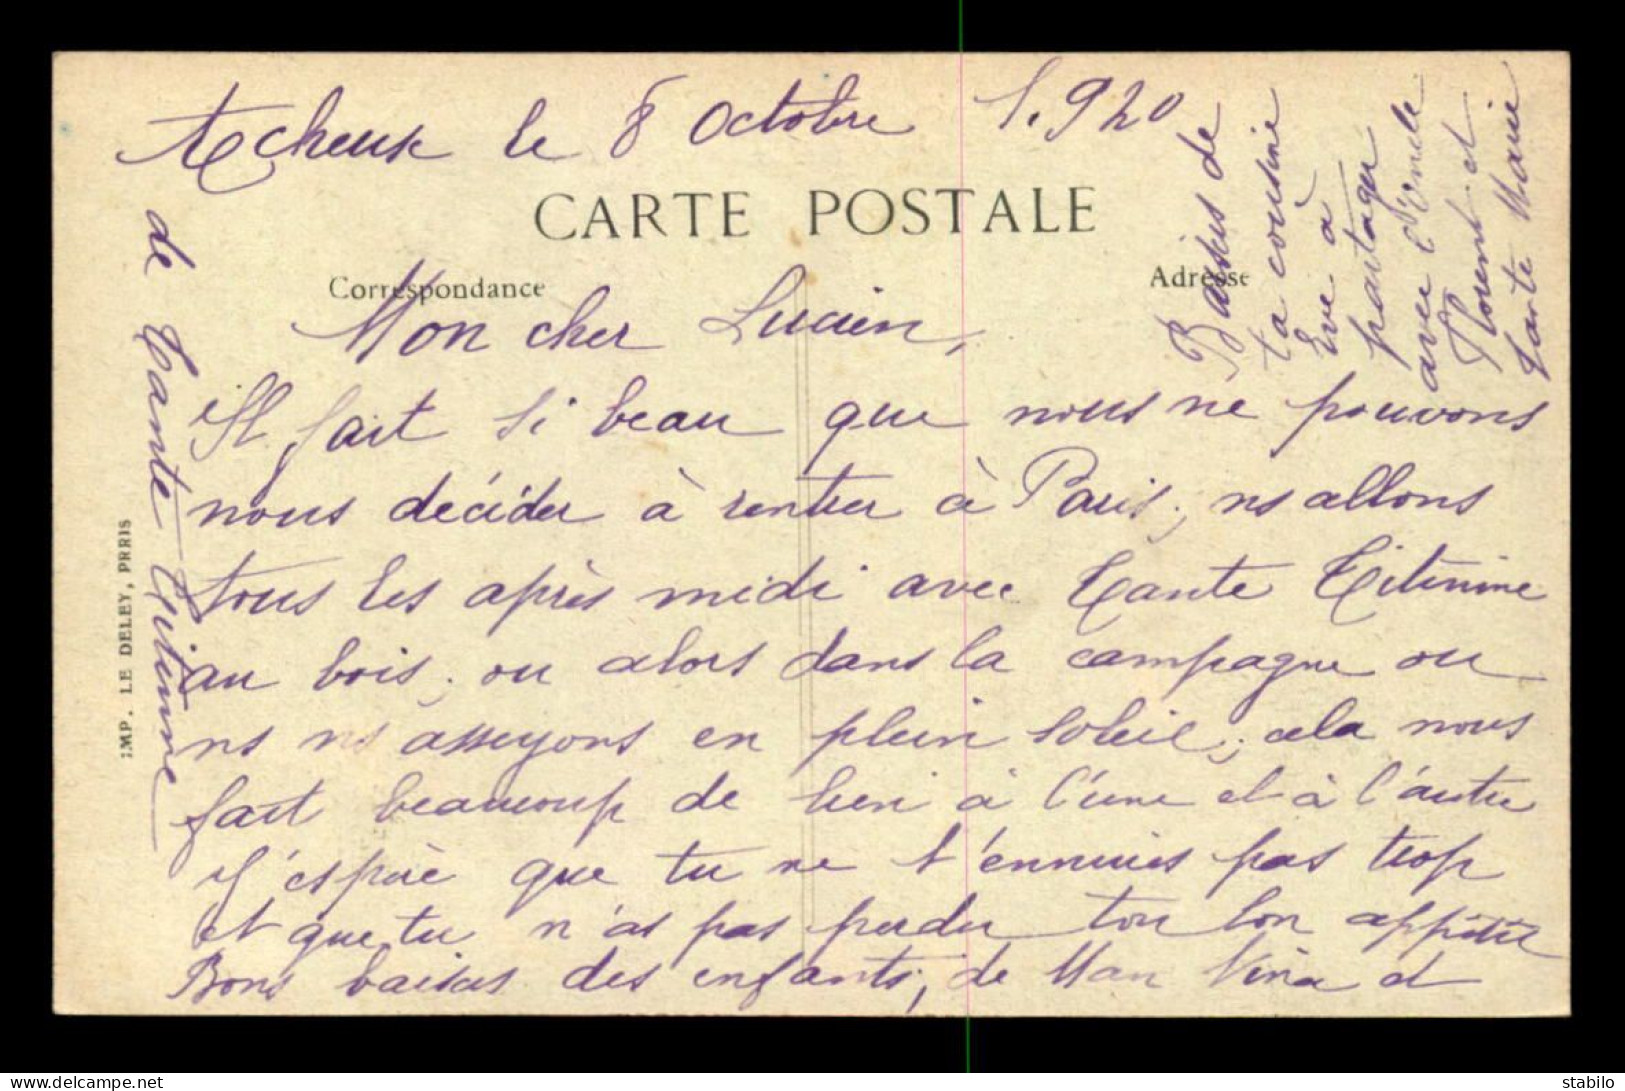 Acheux le 8 Octobre 1.920
CARTE POSTALE
Correspondance
Adresse
Mon cher Lucien,
Il fait si beau que nous ne pouvons
nous décider à rentrer à Paris; ns allons
tous les après midi avec Tante Titinine
au bois, ou alors dans la campagne ou
ns ns asseyons en plein soleil; cela nous
fait beaucoup de bien à l'une et à l'autre
J'espère que tu ne t'ennuies pas trop
et que tu n'as pas perdu ton bon appétit
Bons baisers des enfants, de Man Nina et
de Tante Titinine
Baisers de
ta cousine
Eve à
partager
avec l'Oncle
Florent et
tante Marie
IMP. LE DELEY, PRRIS
stabilo